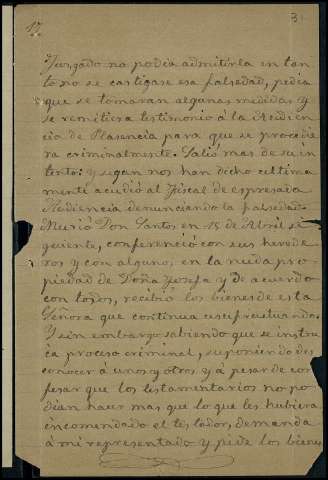 17.
3
Juzgado no podia admitirla en tan
to no se castigase esa falsedad, pedia
que se tomaran algunas medidas y
se remitiera testimonio á la Audien
cia de Plasencia para que se procedie
ra criminalmente. Salió mas de su in
tento: y segun nos han dicho ultima
mente acudió al Fiscal de espresada
Audiencia denunciando la falsedad.
Murió Don Santos en 15 de Abril si
guiente, conferenció con sus herede
ros y con alguno, en la nuda pro
piedad de Doña Josefa y de acuerdo
con todos, recibió los bienes de esta
Señora que continua usufructuando.
Y sin embargo sabiendo que se instru
ia proceso criminal, suponiendo des
conocer á unos y otros y á pesar de con
fesar que los testamentarios no po
dian hacer mas que lo que les hubiera
encomendado el testador, demanda
á mi representado y pide los bienes